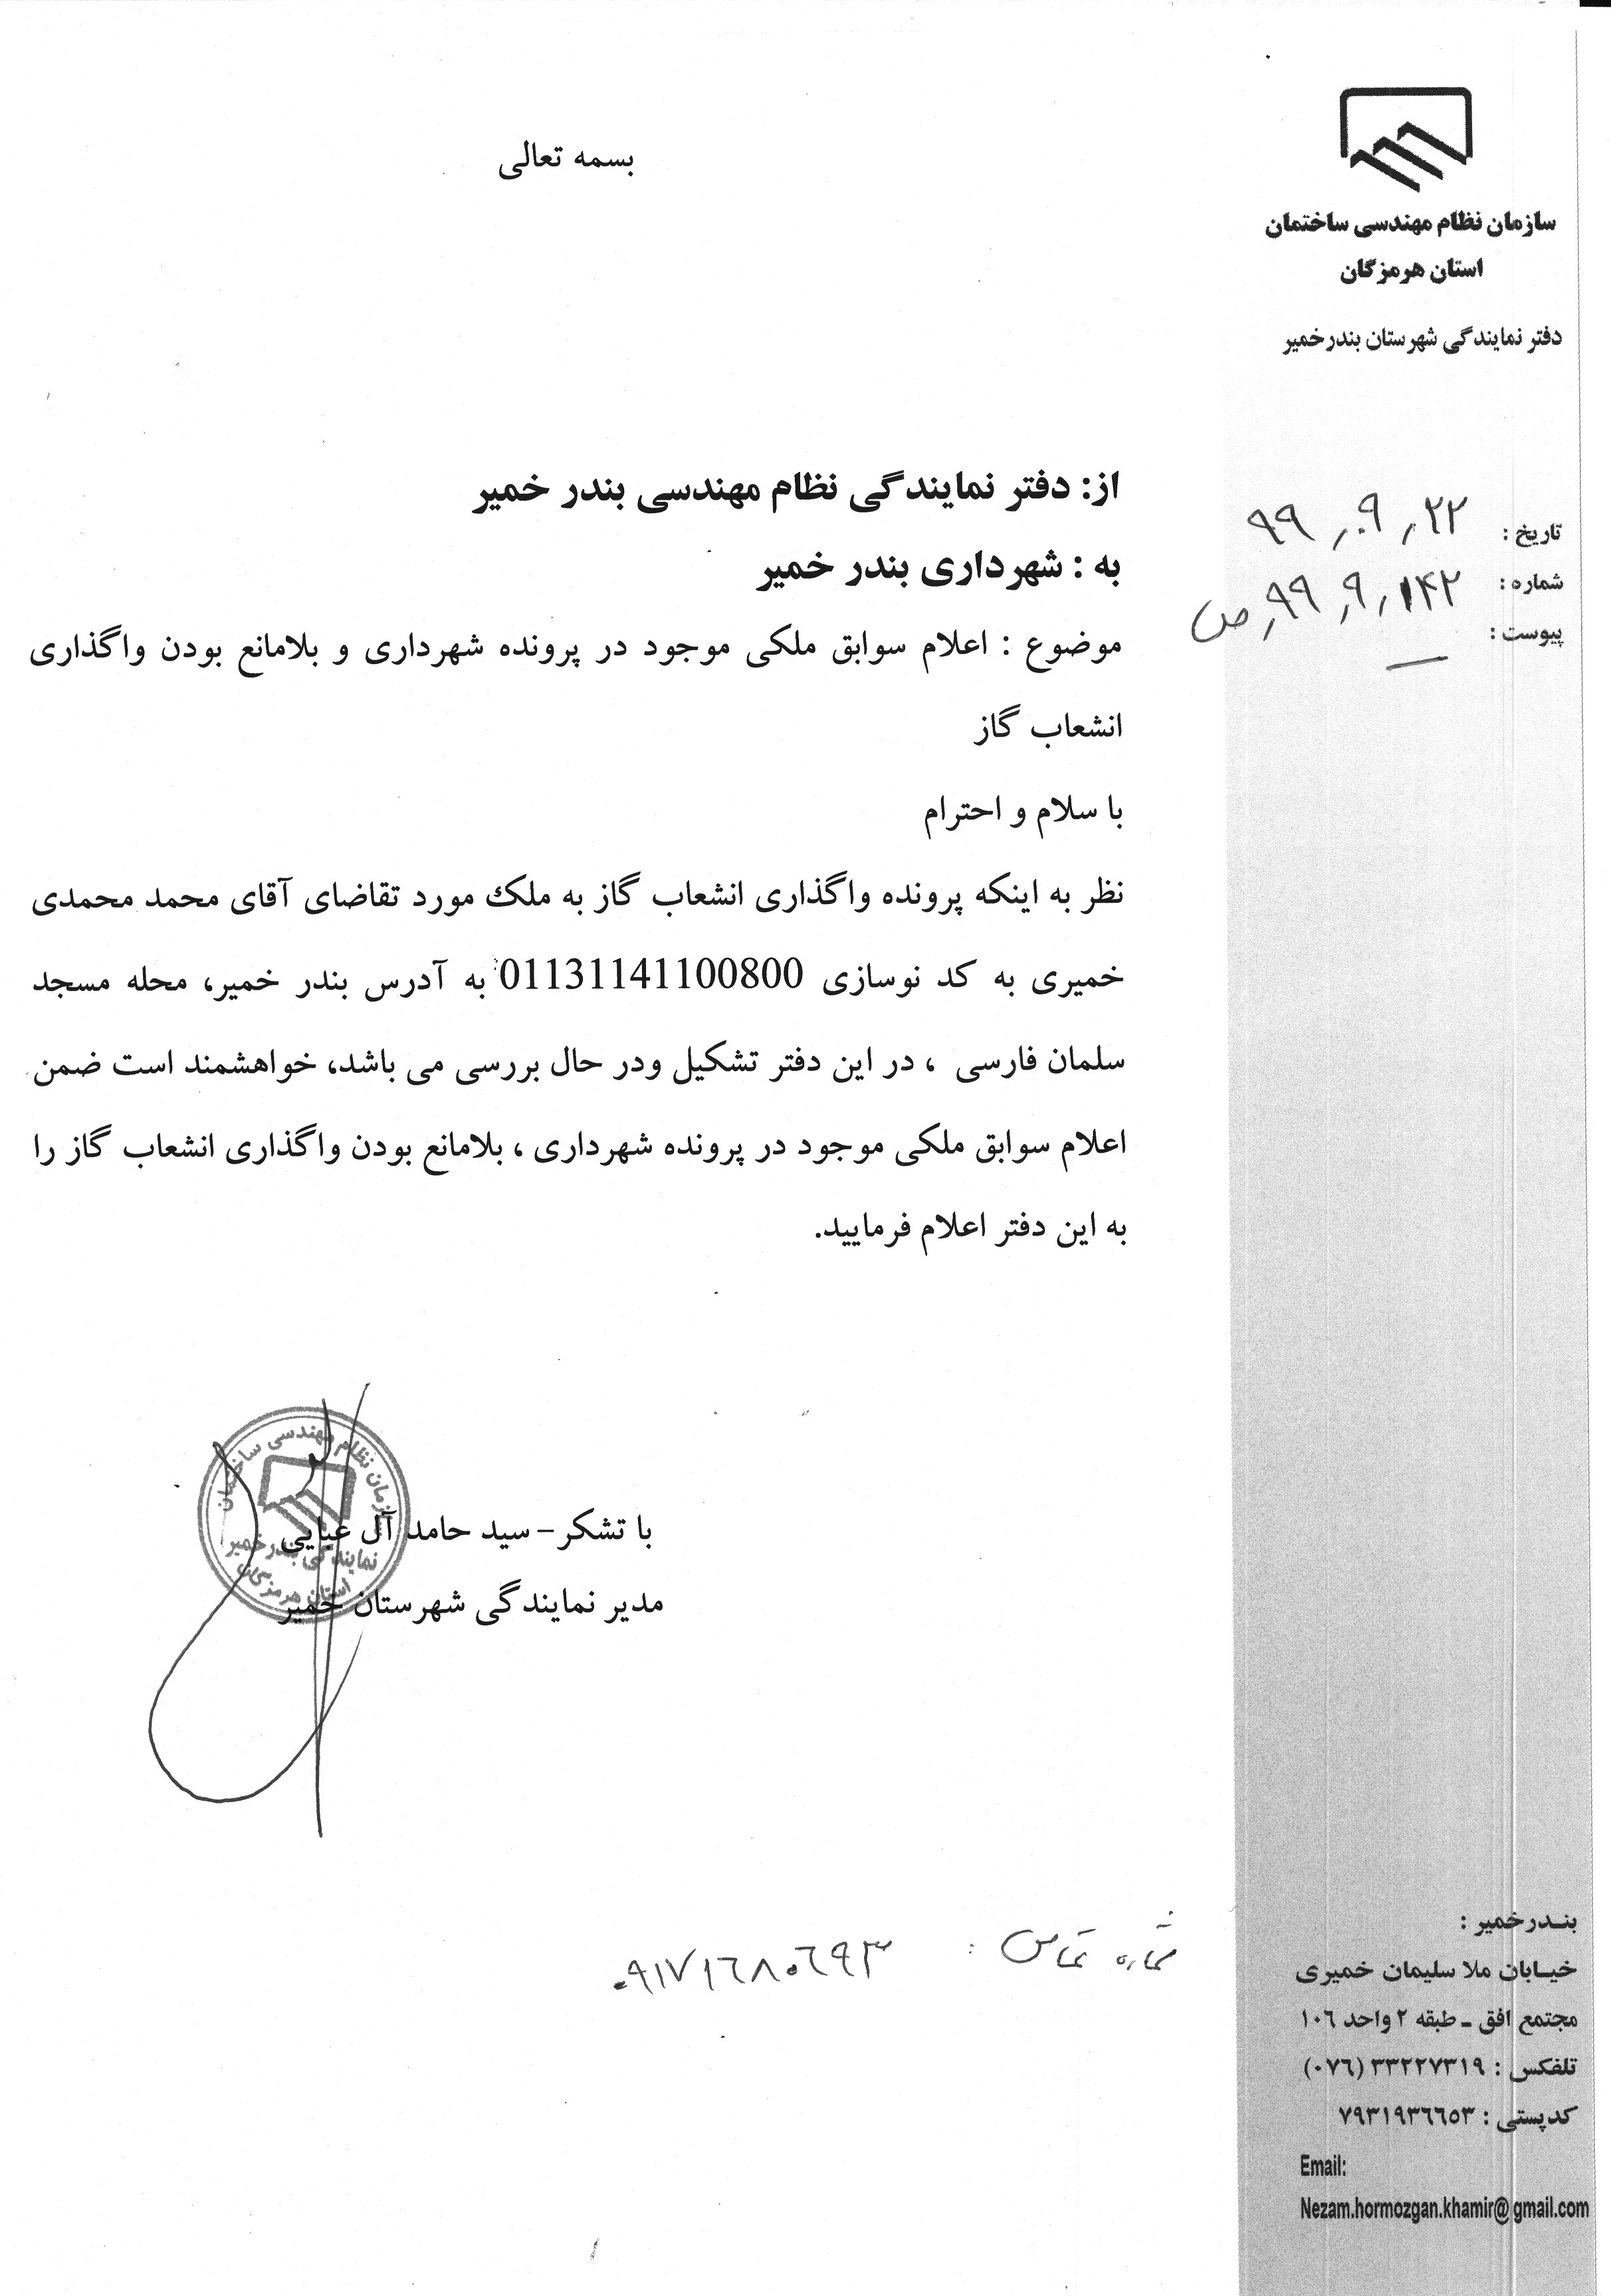 بسمه تعالی
سازمان نظام مهندسی ساختمان
استان هرمزگان
دفتر نمایندگی شهرستان بندرخمیر
تاریخ : ۹۹ ٫ ۰۹ ٫ ۲۲
شماره : ۱۴۲ ٫ ۹ ٫ ۹۹ ٫ ص
پیوست : —
از: دفتر نمایندگی نظام مهندسی بندر خمیر
به : شهرداری بندر خمیر
موضوع : اعلام سوابق ملکی موجود در پرونده شهرداری و بلامانع بودن واگذاری
انشعاب گاز
با سلام و احترام
نظر به اینکه پرونده واگذاری انشعاب گاز به ملک مورد تقاضای آقای محمد محمدی
خمیری به کد نوسازی 01131141100800 به آدرس بندر خمیر، محله مسجد
سلمان فارسی ، در این دفتر تشکیل ودر حال بررسی می باشد، خواهشمند است ضمن
اعلام سوابق ملکی موجود در پرونده شهرداری ، بلامانع بودن واگذاری انشعاب گاز را
به این دفتر اعلام فرمایید.
با تشکر – سید حامد آل عبایی
مدیر نمایندگی شهرستان خمیر
سازمان نظام مهندسی ساختمان
نمایندگی بندرخمیر
استان هرمزگان
شماره تماس : ۰۹۱۷۱۶۸۰۶۹۳
بندرخمیر :
خیابان ملا سلیمان خمیری
مجتمع افق ـ طبقه ۲ واحد ۱۰۶
تلفکس : ۳۳۲۲۷۳۱۹ (۰۷۶)
کدپستی : ۷۹۳۱۹۳۶۶۵۳
Email:
Nezam.hormozgan.khamir@gmail.com